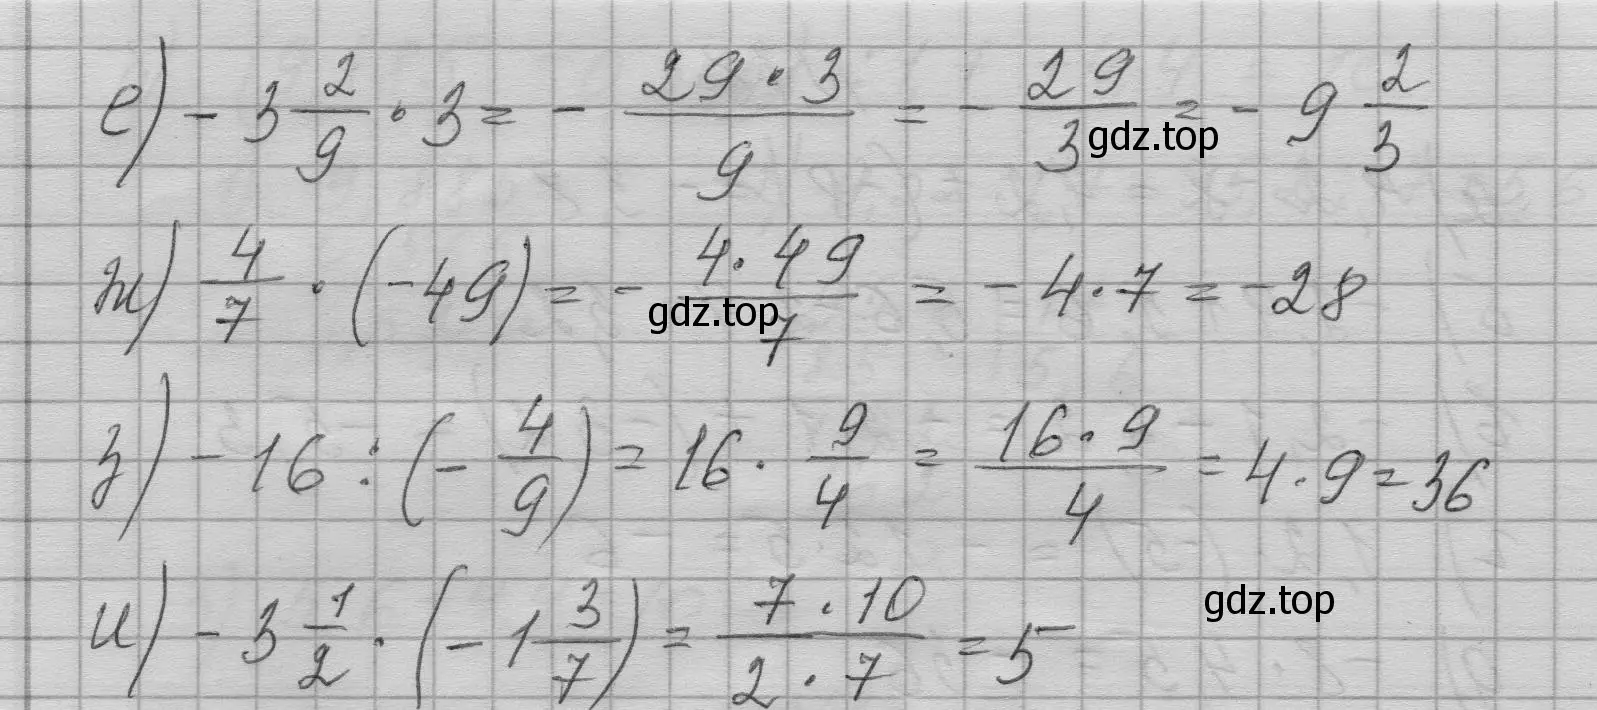 е) - 3 2/9 · 3 = - 29 · 3/9 = - 29/3 = - 9 2/3
gdz.top
ж) 4/7 · (-49) = - 4 · 49/7 = - 4 · 7 = -28
gdz.top
з) - 16 : (- 4/9) = 16 · 9/4 = 16 · 9/4 = 4 · 9 = 36
и) - 3 1/2 · (- 1 3/7) = 7 · 10/2 · 7 = 5
gdz.top